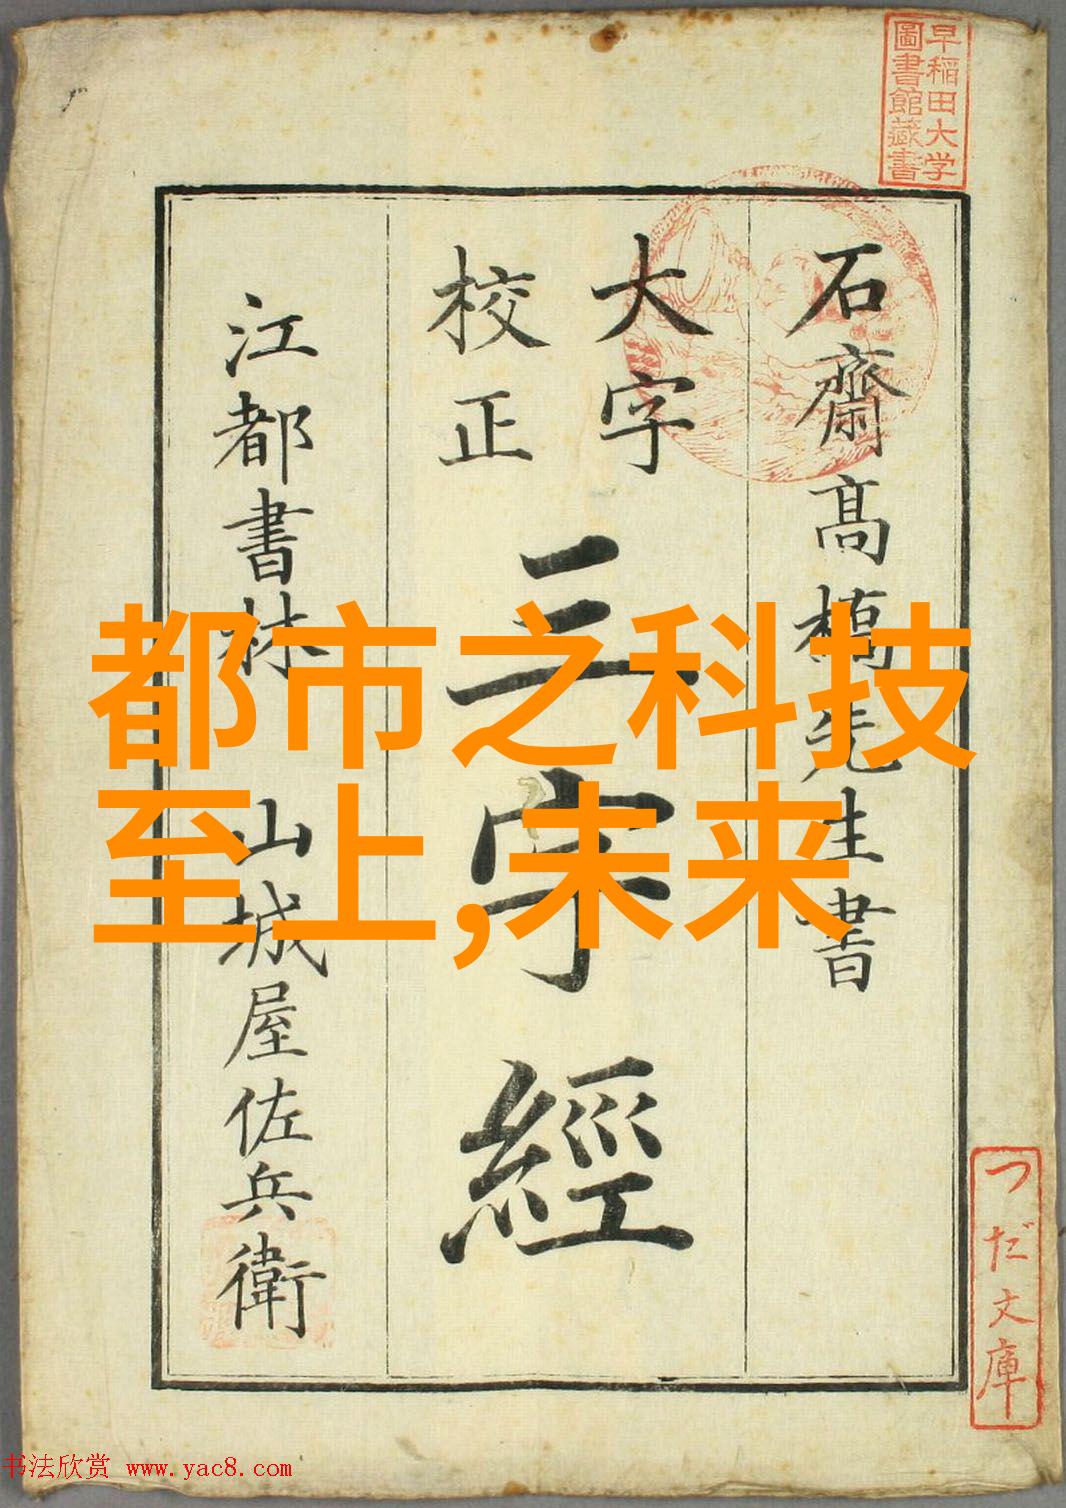 早稲田大学
圖書館藏書
石齋髙橋先生書
大字
校正
三字經
江都書林 山城屋佐兵衛
都市之科技
至上,未来
つだ文庫
书法欣赏 www.yac8.com